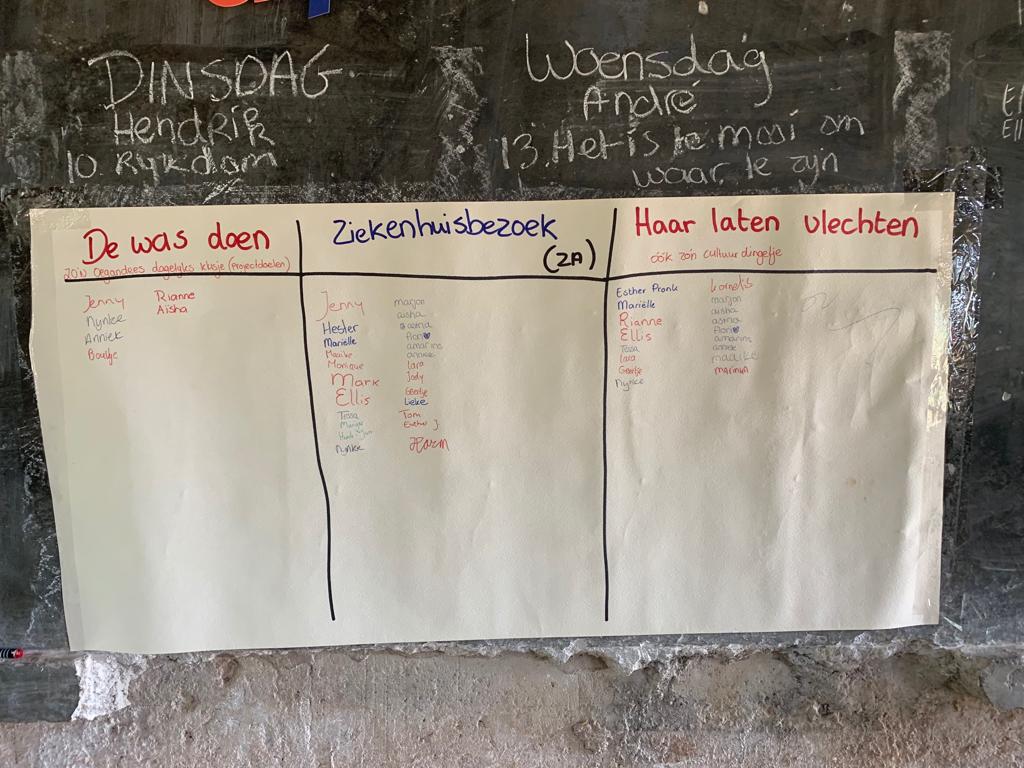 DINSDAG
Hendrik
10. Rijkdom
Woensdag
André
13. Het is te mooi om
waar te zijn
De was doen
zo'n Oegandees dagelijks klusje (projectdoelen)
Jenny
Nynke
Anniek
Boutje
Rianne
Aisha
Ziekenhuisbezoek
(ZA)
Jenny
Hester
Mariëlle
Maaike
Monique
Mark
Ellis
Tessa
Nynke
marjon
aisha
astrid
amarins
anneke
lara
Jody
Geertje
Lieke
Tom
Esther J
Harm
Haar laten vlechten
óók zo'n cultuur dingetje
Esther Pronk
Mariëlle
Rianne
Ellis
Tessa
lara
Geertje
Nynke
Kornelis
marjon
aisha
amarins
maaike
marinka